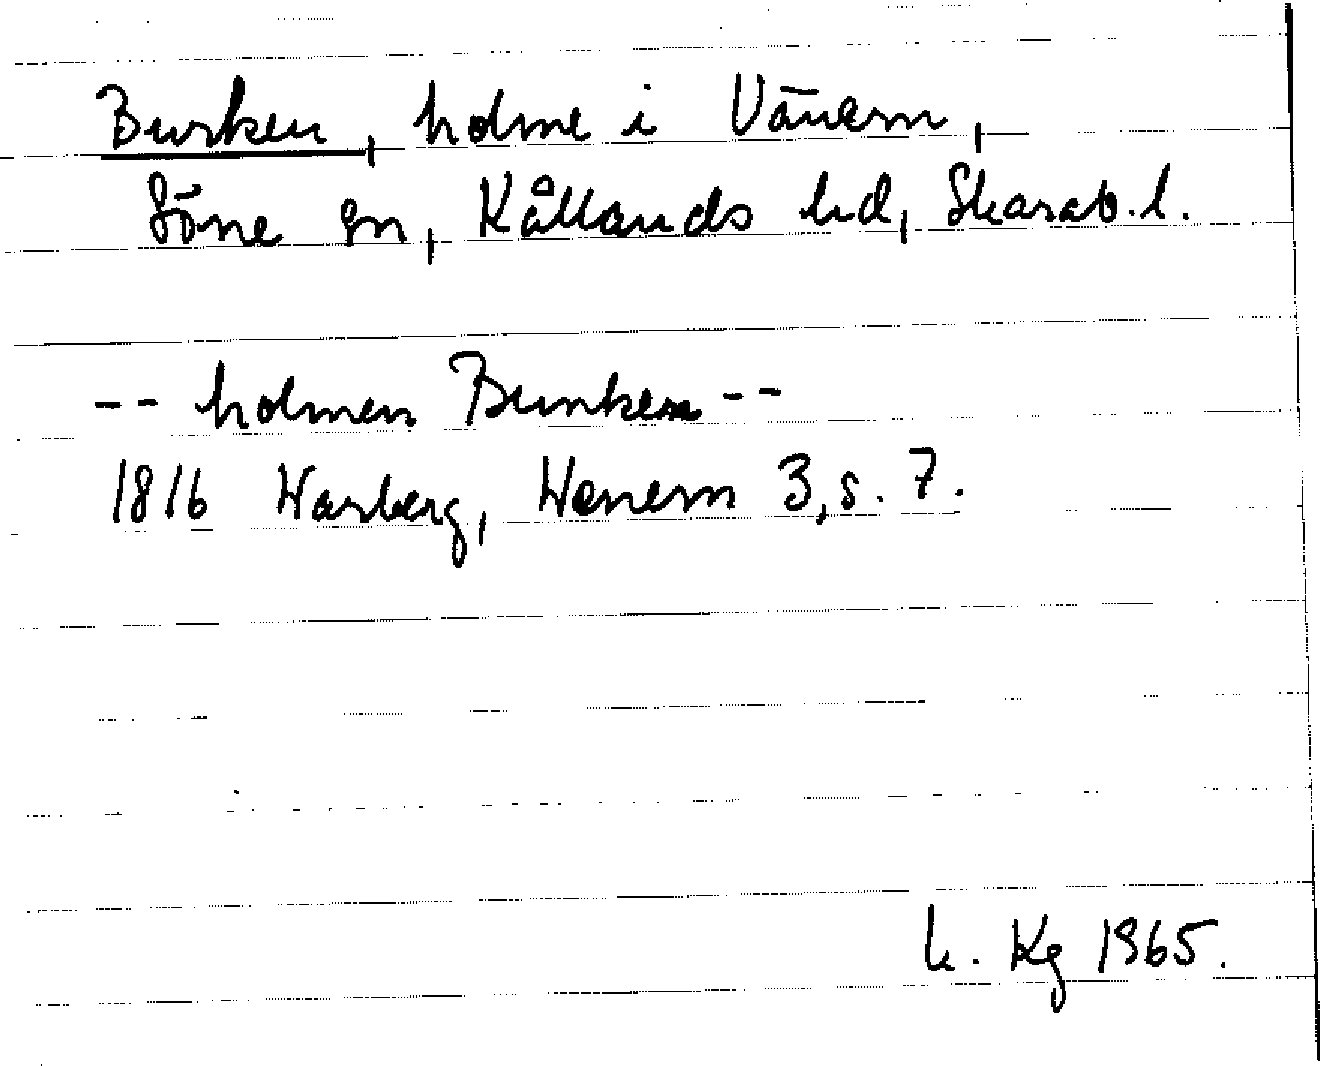 Burken, holme i Vänern,
Söne sn, Kållands hd, Skarab. l.
-- holmen Bunken --
1816 Warberg, Wenern 3, s. 7.
h. Kg 1965.